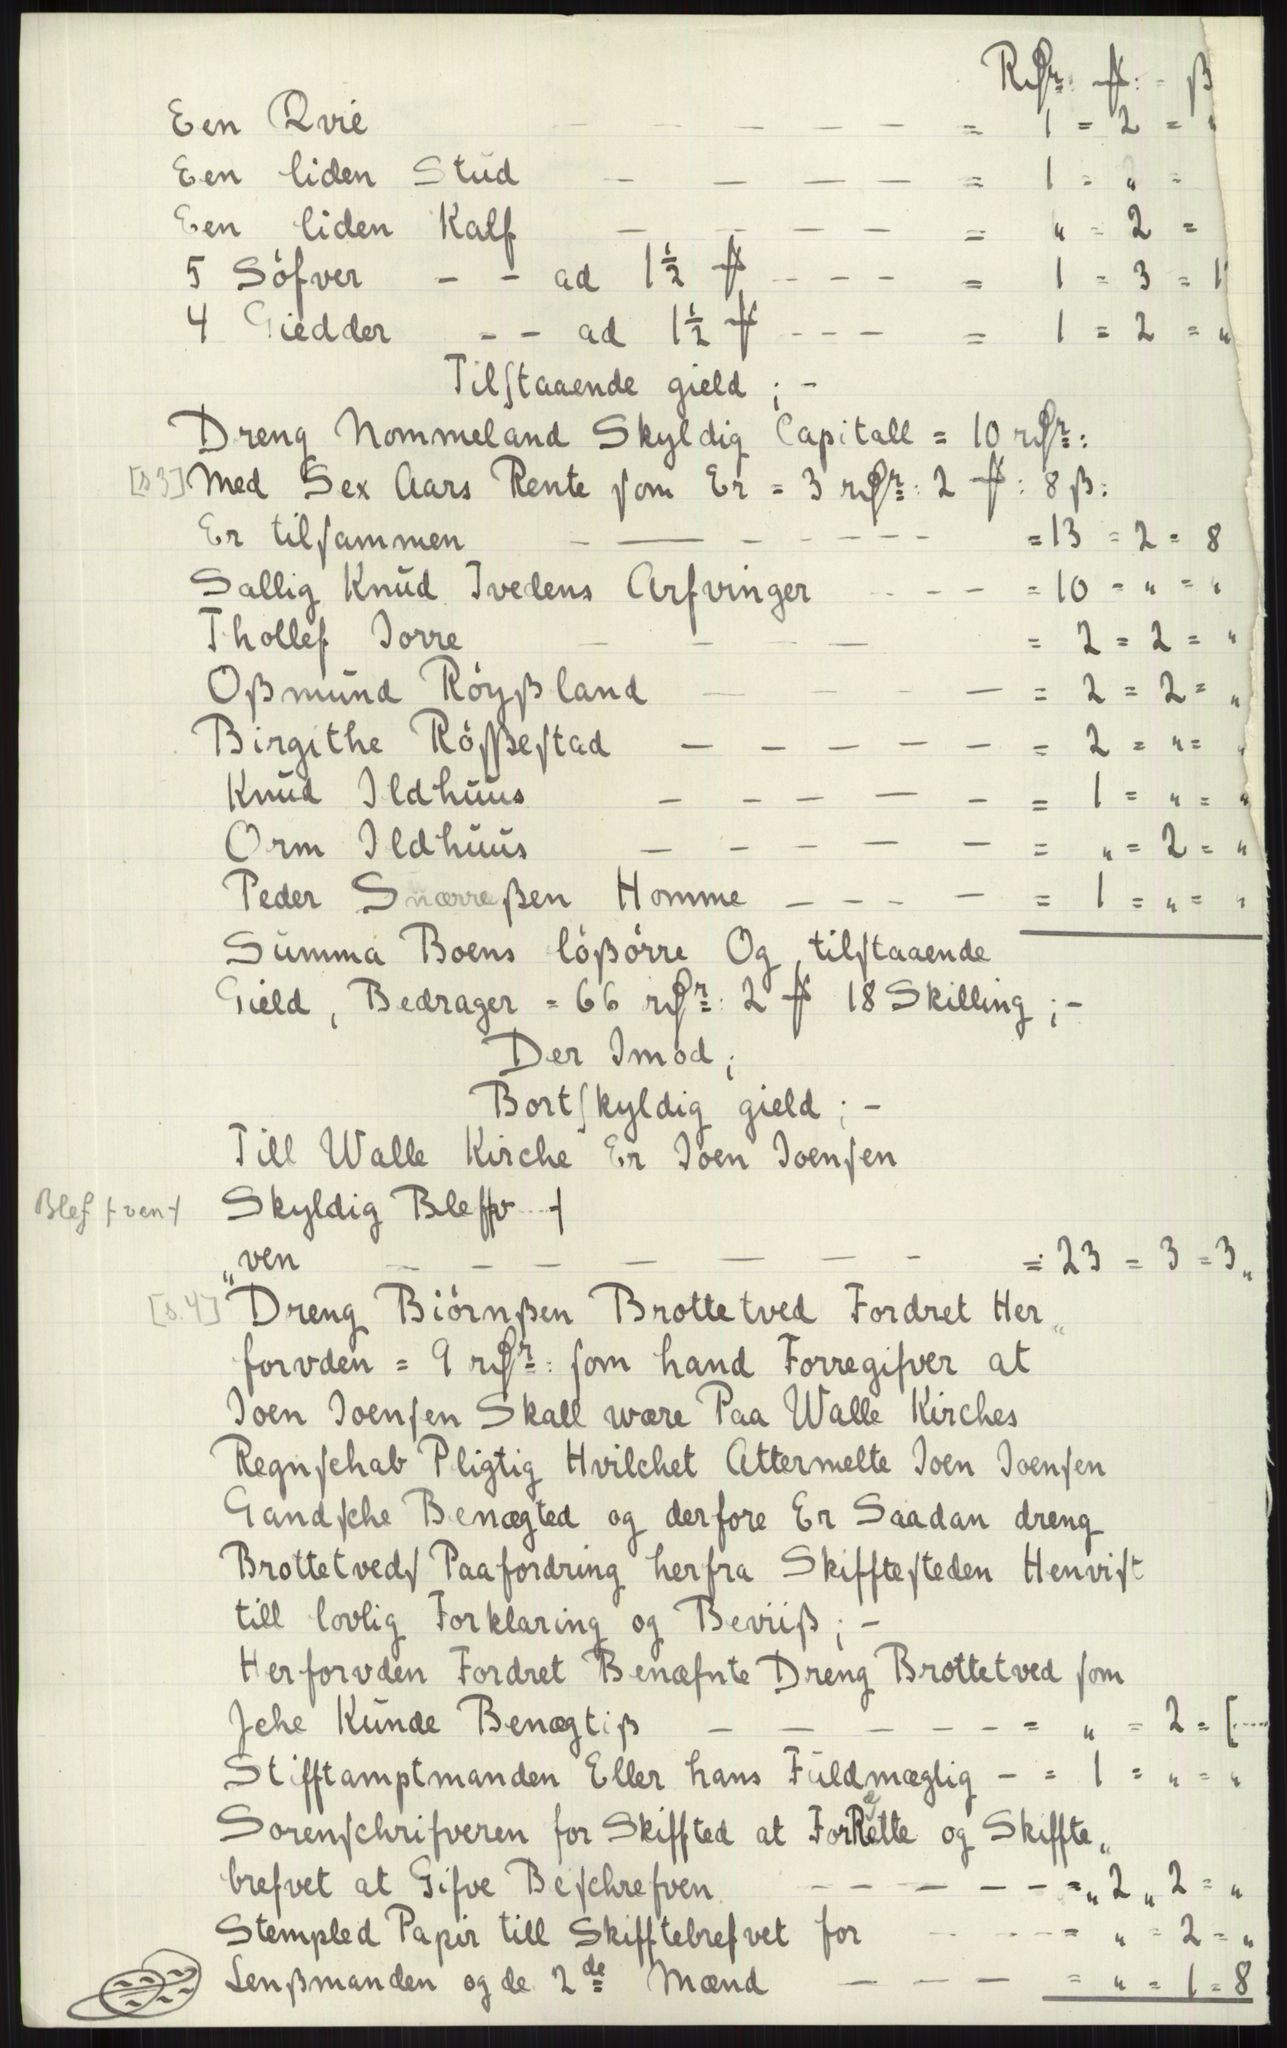 Rdr: ort: = ß
Een Qvie — — — — — = 1 = 2 = "
Een liden Stud — — — — = 1 = " =
Een liden Kalf — — — — — = " = 2 =
5 Söfver — — ad 1½ ort — — — = 1 = 3 = 1
4 Giedder — — ad 1½ ort — — — = 1 = 2 = "
Tilstaaende gield ; —
Dreng Nommeland Skyldig Capitall = 10 rdr:
[s 3] Med Sex Aars Rente som Er = 3 rdr: 2 ort: 8 ß:
Er tilsammen — — — — — — — = 13 = 2 = 8
Sallig Knud Ivedens Arfvinger — — — = 10 = " = "
Thollef Jorre — — — — = 2 = 2 = "
Oßmund Röyßland — — — — — = 2 = 2 = "
Birgithe Rößestad — — — — — — = 2 = " = "
Knud Ildhuus — — — — — = 1 = " = "
Orm Ildhuus — — — — — = " = 2 = "
Peder Snærreßen Homme — — — — = 1 = " = "
Summa Boens lößörre Og tilstaaende
Gield, Bedrager = 66 rdr: 2 ort 18 Skilling ; —
Der Imod ;
Bortskyldig gield ; —
Till Walle Kirche Er Joen Joensen
Blef
Skyldig Bleffv
"ven — — — — — — — = 23 = 3 = 3 "
[s. 4] Dreng Biörnßen Brottetved Fordret Her"
forvden = 9 rdr: som hand Forregifver at
Joen Joensen Skall wære Paa Walle Kirches
Regnschab Pligtig Hvilchet Attermelte Joen Joensen
Gandsche Benægted og derfore Er Saadan dreng
Brottetveds Paafordring herfra Skifftesteden Henvist
till lovlig Forklaring og Beviiß ; —
Herforvden Fordret Benæfnte Dreng Brottetved som
Iche Kunde Benægtiß — — — — — — = " = 2 = [....
Stifftamptmanden Eller hans Fuldmægtig — = 1 = " = "
Sorenschrifveren for Skiffted at ForRette og Skiffte"
brefvet at Gifve Beschrefven — — — — — = " 2 " 2 = "
Stempled Papir till Skifftebrefvet for — — — = " = 2 = "
Lenßmanden og de 2de Mænd — — — = " = 1 = 8